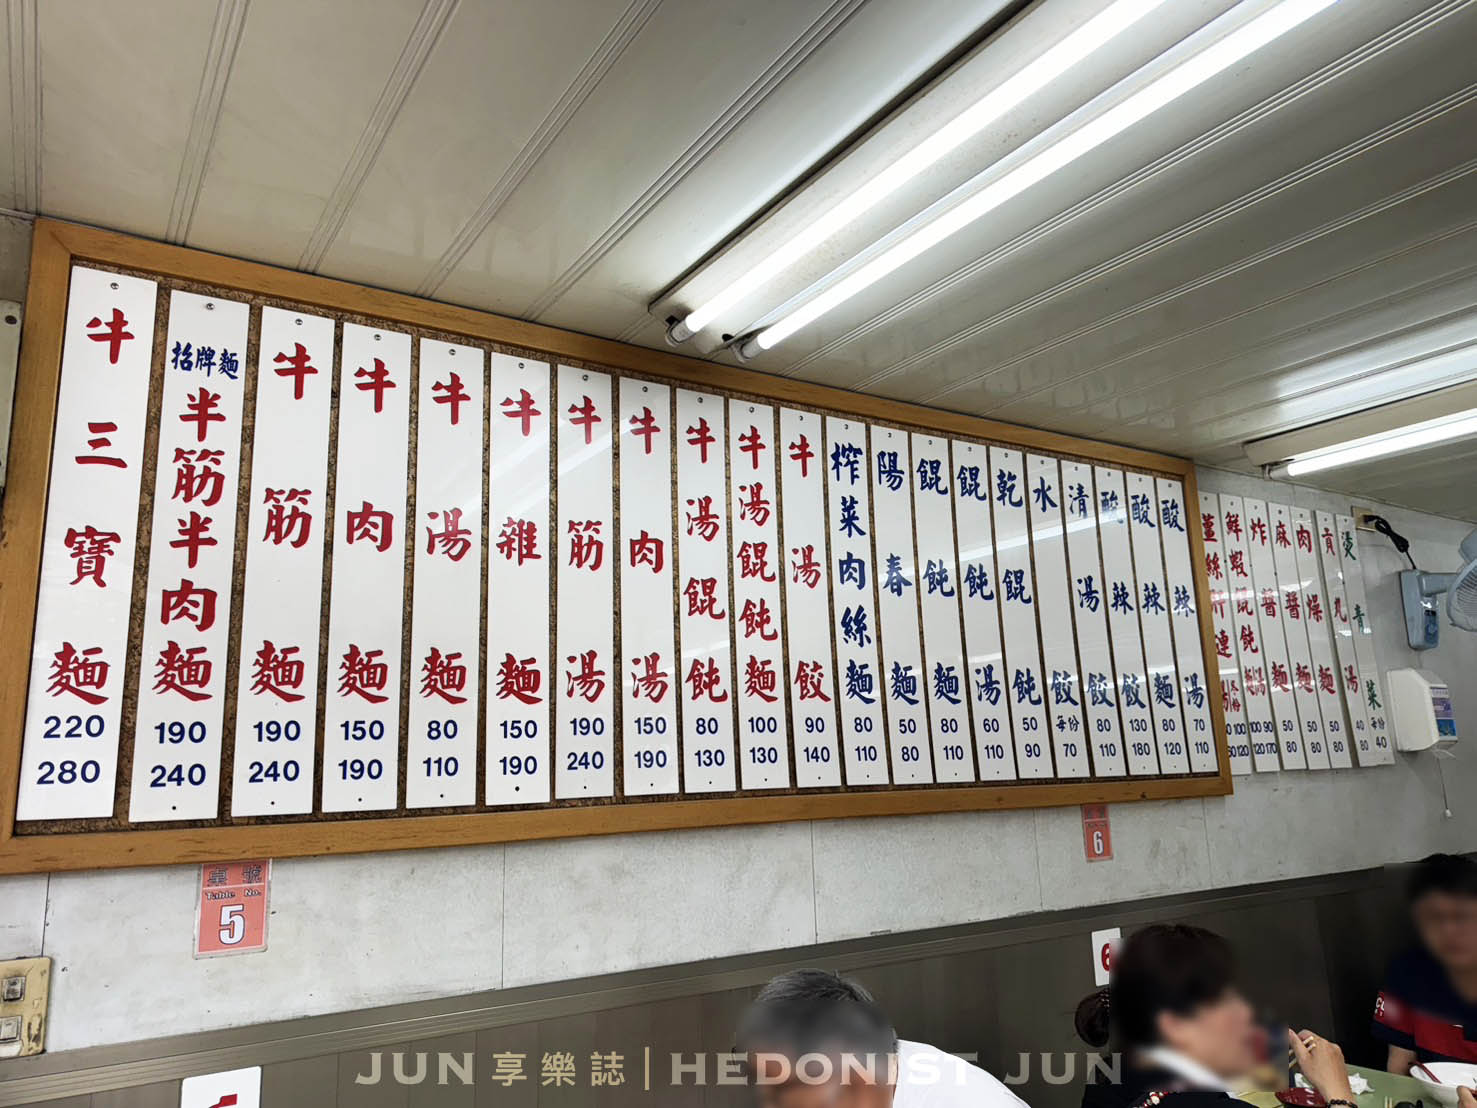 牛三寶麵 220 280
招牌麵 半筋半肉麵 190 240
牛筋麵 190 240
牛肉麵 150 190
牛湯麵 80 110
牛雜麵 150 190
牛筋湯 190 240
牛肉湯 150 190
牛湯餛飩 80 130
牛湯餛飩麵 100 130
牛湯餃 90 140
榨菜肉絲麵 80 110
陽春麵 50 80
餛飩麵 80 110
餛飩湯 60 110
乾餛飩 50 90
水餃 每份 70
清湯餃 80 110
酸辣餃 130 180
酸辣麵 80 120
酸辣湯 70 110
薑絲
鮮蝦餛飩 100 120
炸醬麵 50 80
麻醬麵 50 80
肉燥麵 50 80
貢丸湯 40 80
燙青菜 每份 40
桌號
Table No.
5
6
6
JUN享樂誌|HEDONIST JUN